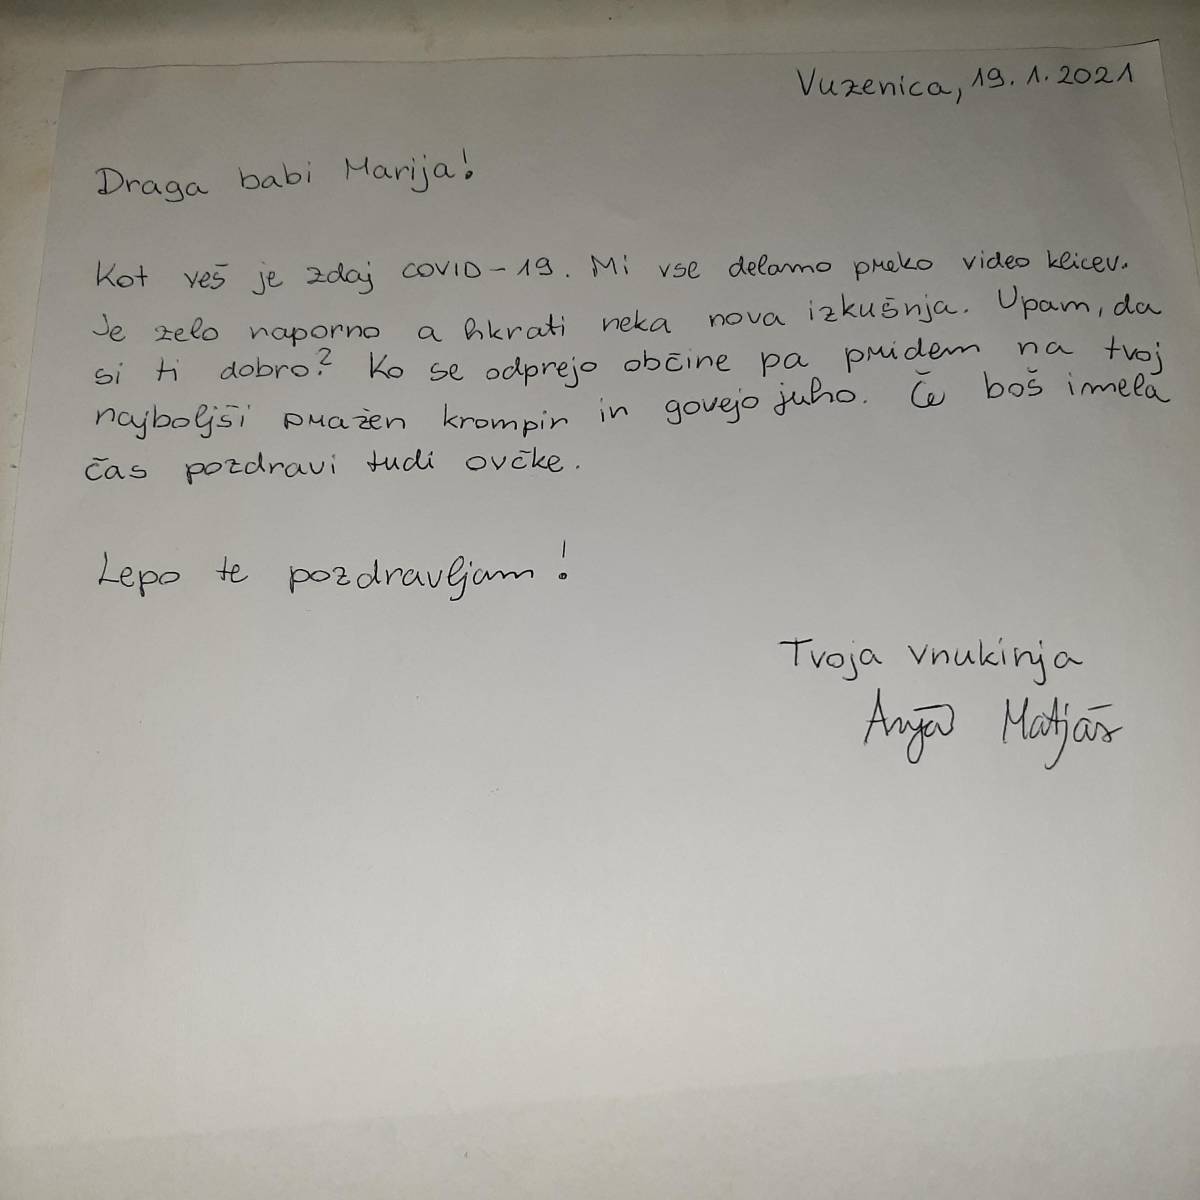 Vuzenica, 19. 1. 2021
Draga babi Marija!
Kot veš je zdaj COVID-19. Mi vse delamo preko video klicev.
Je zelo naporno a hkrati neka nova izkušnja. Upam, da
si ti dobro? Ko se odprejo občine pa pridem na tvoj
najboljši pražen krompir in govejo juho. Če boš imela
čas pozdravi tudi ovčke.
Lepo te pozdravljam!
Tvoja vnukinja
Anja Matjaš